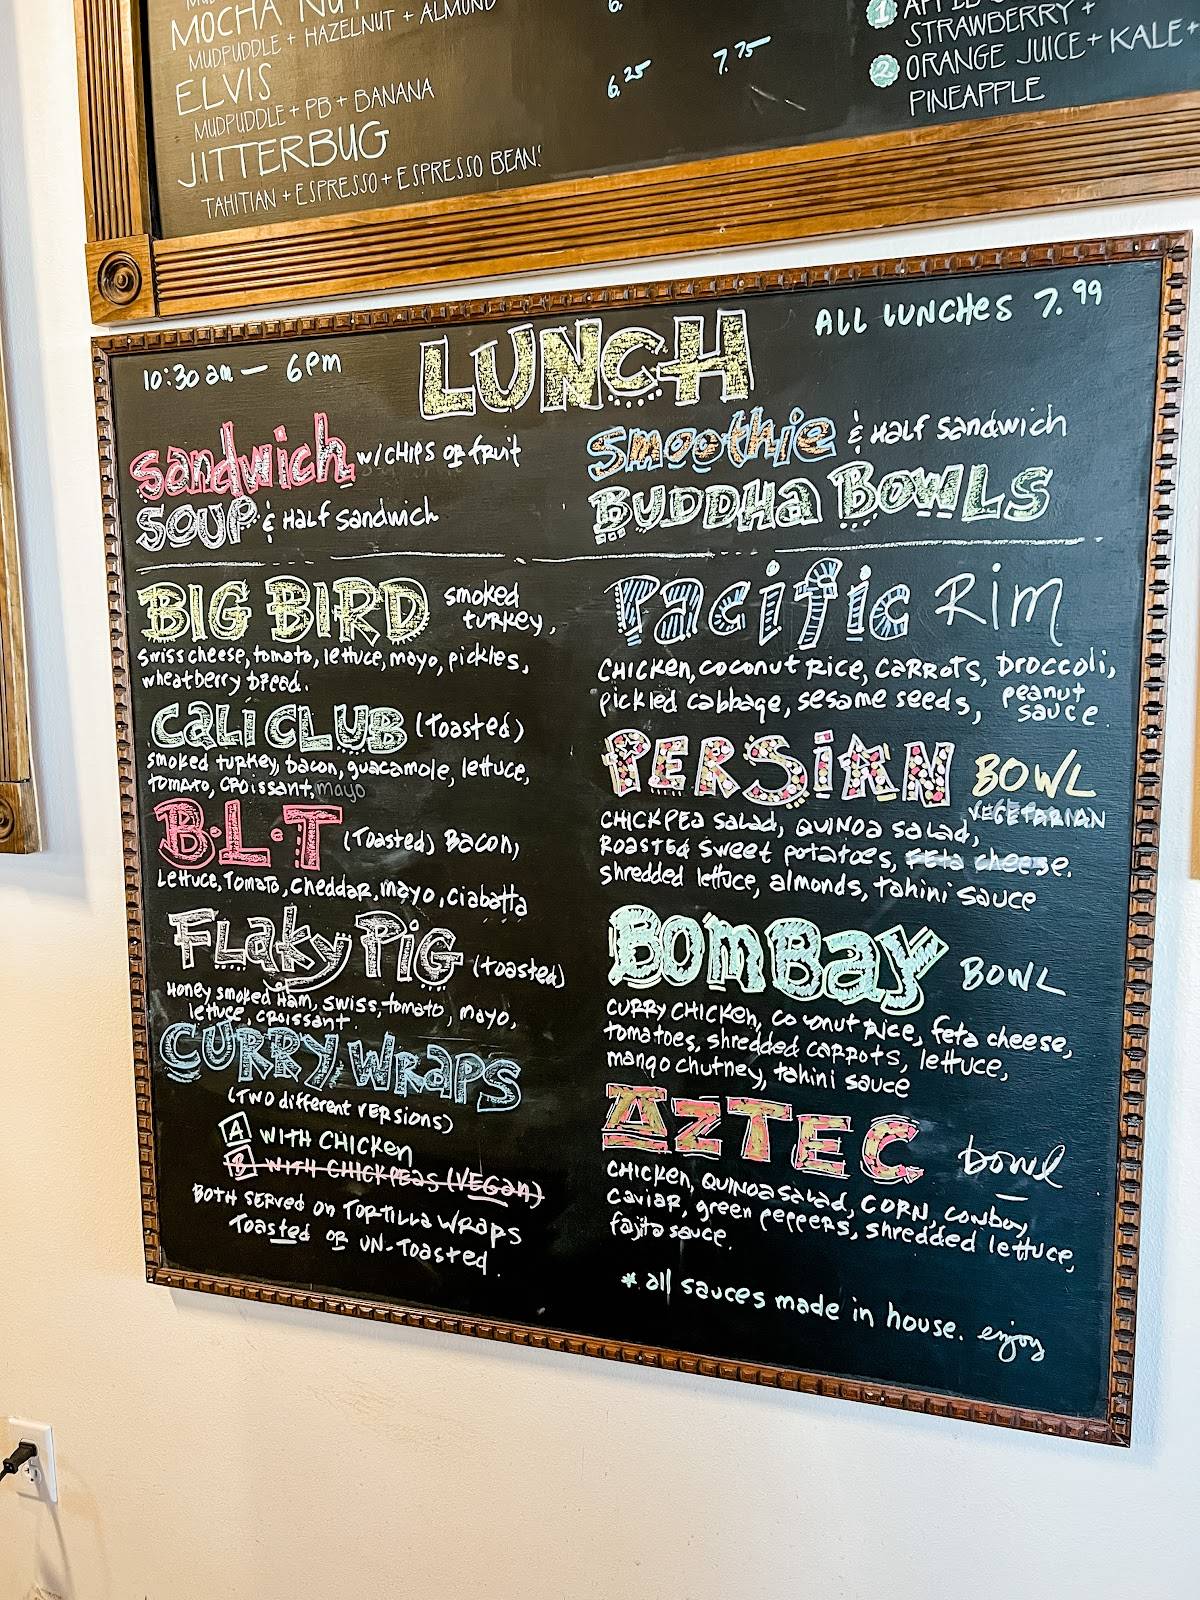 MOCHA NUT
MUDPUDDLE + HAZELNUT + ALMOND
6.
ELVIS
MUDPUDDLE + PB + BANANA
6.25 7.75
JITTERBUG
TAHITIAN + ESPRESSO + ESPRESSO BEAN!
1
STRAWBERRY +
2 ORANGE JUICE + KALE +
PINEAPPLE
10:30 am — 6pm
LUNCH
ALL LUNCHES 7.99
Sandwich w/ CHIPS OR fruit
SOUP & Half Sandwich
Smoothie & Half Sandwich
BUDDHA BOWLS
BIG BIRD smoked
turkey,
swiss cheese, tomato, lettuce, mayo, pickles,
wheatberry bread.
CALI CLUB (Toasted)
smoked turkey, bacon, guacamole, lettuce,
tomato, croissant, mayo
B.L.T (Toasted) Bacon,
Lettuce, Tomato, cheddar, mayo, ciabatta
FLaky PiG (toasted)
Honey smoked Ham, swiss, tomato, mayo,
lettuce, croissant.
CURRY WRAPS
(TWO different versions)
A WITH CHICKEN
B WITH CHICKPEAS (VEGan)
BOTH SERVED on TORTILLA WRAPS
Toasted OR UN-Toasted.
Pacific Rim
CHICKEN, coconut Rice, CARROTS, broccoli,
pickled cabbage, sesame seeds, peanut
sauce.
PERSIAN BOWL
VEGETARIAN
CHICKPEA Salad, QUINOA salad,
Roasted Sweet potatoes, FEta cheese.
shredded lettuce, almonds, tahini sauce
BOMBAY BOWL
CURRY CHICKEN, coconut Rice, feta cheese,
tomatoes, shredded carrots, lettuce,
mango chutney, tahini sauce
AZTEC bowl
CHICKEN, QUINOA SALAD, CORN, cowboy
Caviar, green peppers, shredded lettuce,
fajita sauce.
* all sauces made in house. enjoy